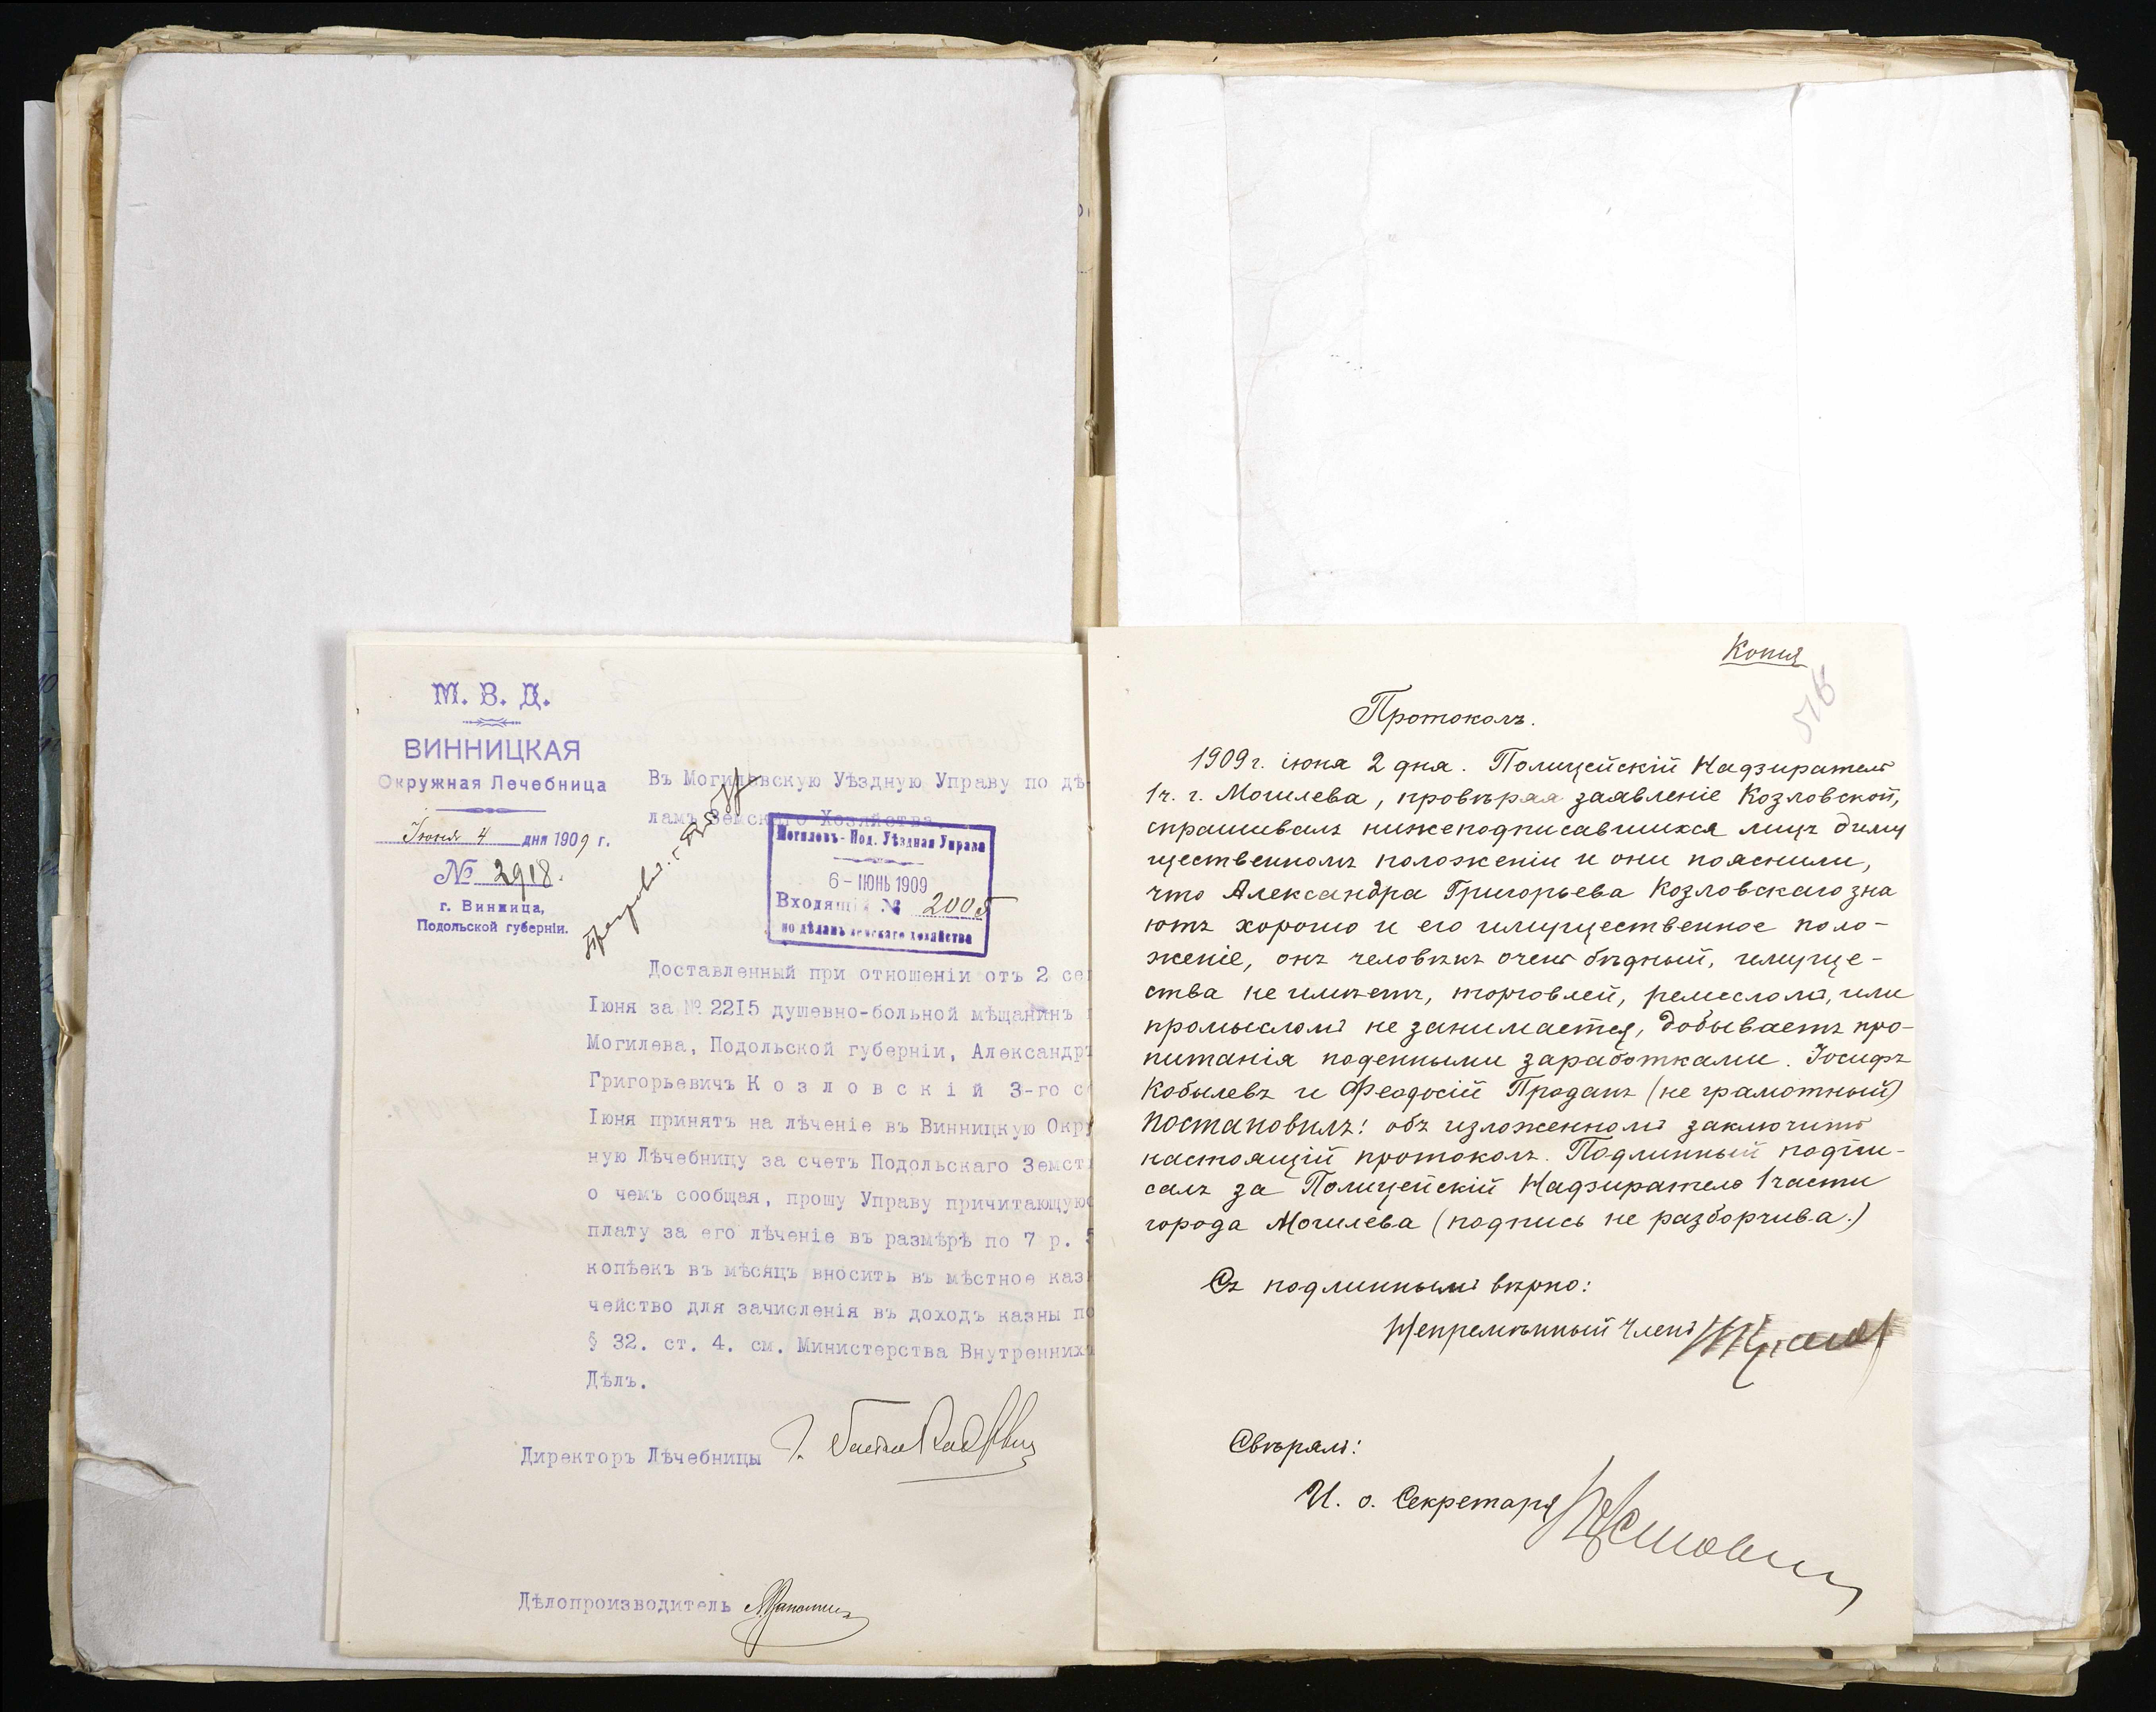 М. В. Д.
ВИННИЦКАЯ
Окружная Лечебница
Іюня 4 дня 1909 г.
№ 2918.
г. Винница,
Подольской губерніи.
Въ Могилевскую Уѣздную Управу по дѣ
ламъ Земскаго Хозяйства
Могилевъ-Под. Уѣздная Управа
6-ІЮНЬ 1909
Входящій № 2005
по дѣламъ земскаго хозяйства
Доставленный при отношеніи отъ 2 се
Іюня за № 2215 душевно-больной мѣщанинъ
Могилева, Подольской губерніи, Александръ
Григорьевичъ Козловскій 3-го с
Іюня принятъ на лѣченіе въ Винницкую Окру
ную Лѣчебницу за счетъ Подольскаго Земст
о чемъ сообщая, прошу Управу причитающуюс
плату за его лѣченіе въ размѣрѣ по 7 р. 5
копѣекъ въ мѣсяцъ вносить въ мѣстное каз
чейство для зачисленія въ доходъ казны по
§ 32. ст. 4. см. Министерства Внутреннихъ
Дѣлъ.
Директоръ Лѣчебницы
Дѣлопроизводитель
Копія
Протоколъ.
1909 г. іюня 2 дня. Полицейскій Надзиратель
1 ч. г. Могилева, провѣряя заявленіе Козловской,
спрашивалъ нижеподписавшихся лицъ
щественномъ положеніи и они пояснили,
что Александра Григорьева Козловскаго зна
ютъ хорошо и его имущественное поло-
женіе, онъ человѣкъ очень бѣдный, имуще-
ства не имѣетъ, торговлей, ремесломъ, или
промысломъ не занимается, добываетъ про-
питанія поденными заработками. Іосифъ
Кобылевъ и Феодосій Проданъ (не грамотный)
постановилъ: объ изложенномъ заключить
настоящій протоколъ. Подлинный подпи-
салъ за Полицейскій Надзиратель 1 части
города Могилева (подпись не разборчива.)
Съ подлиннымъ вѣрно:
Непремѣнный Членъ
Свѣрялъ:
И. о. Секретаря